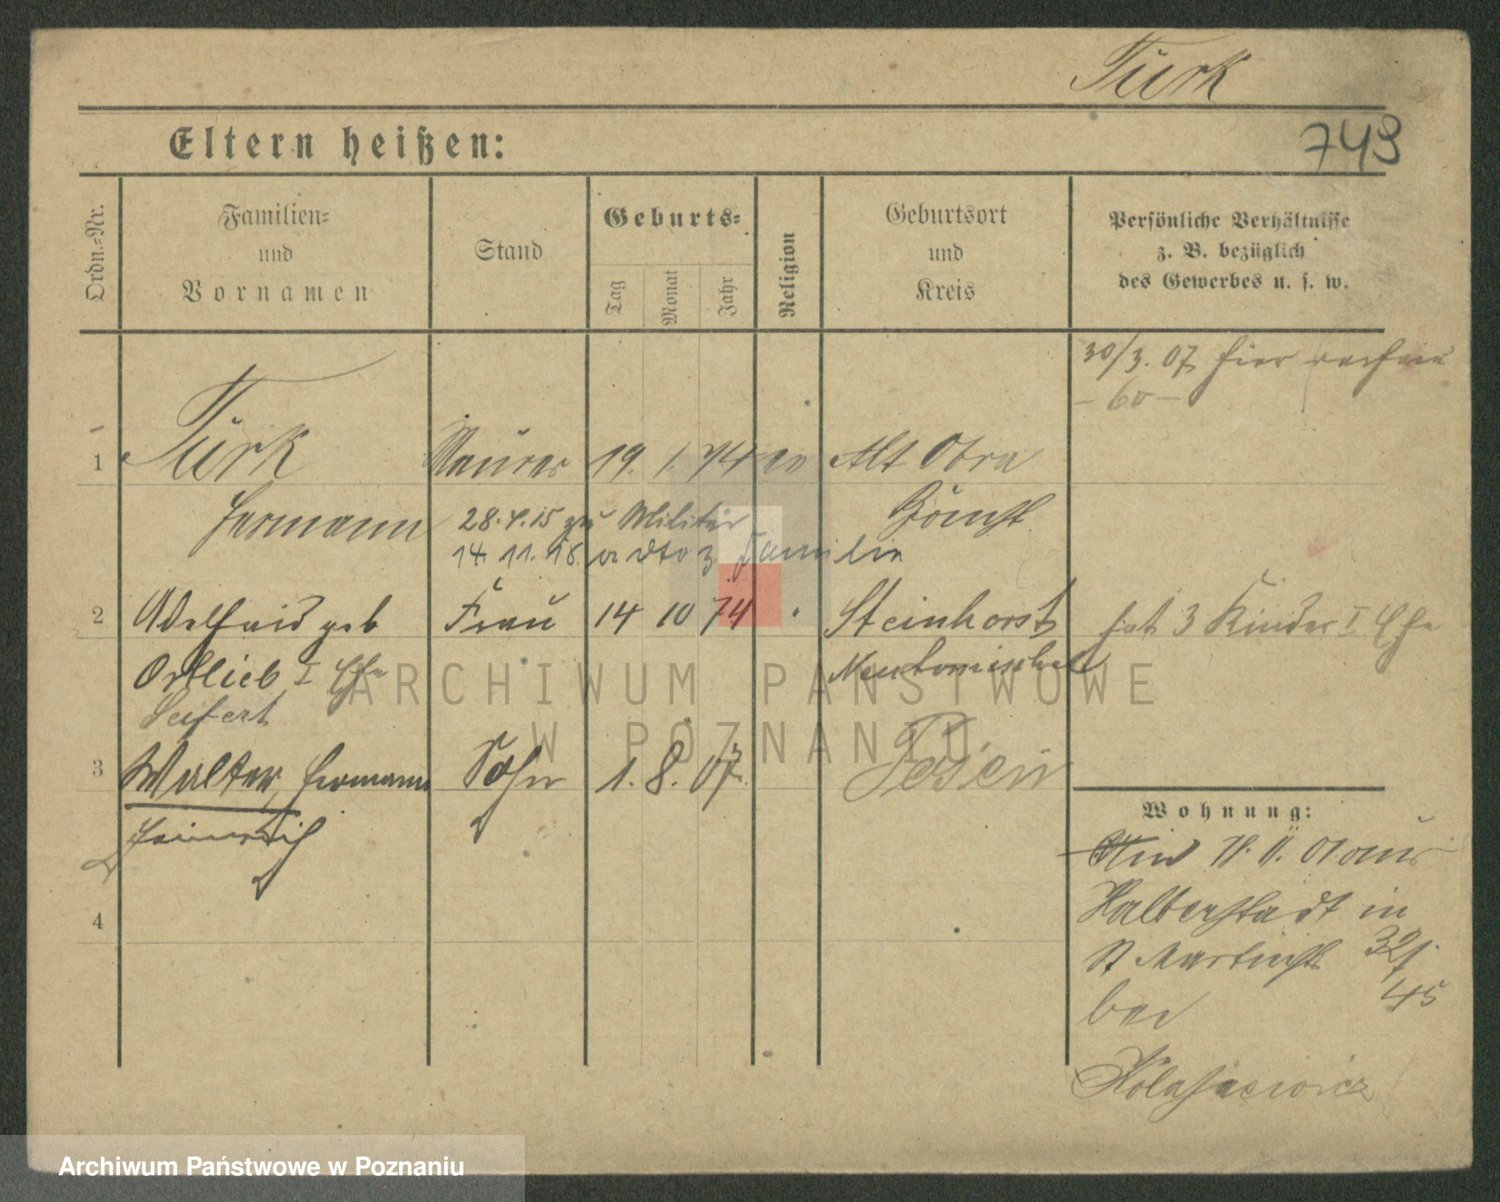 Türk
Eltern heißen:
743
Ordn.-Nr.
Familien-
und
Vornamen
Stand
Geburts-
Tag
Monat
Jahr
Religion
Geburtsort
und
Kreis
Persönliche Verhältnisse
z. B. bezüglich
des Gewerbes u. s. w.
30/3. 07 hier
- 60 -
1 Türk Maurer 19. 1. 74 ev Alt Obra
Hermann
Bomst
28.4.15 zu Militär
14.11.18 Familie
2 Adelheid geb Frau 14 10 74 Steinhorst hat 3 Kinder I Ehe
Ortlieb I Ehe
Neutomischel
Seifert
3 Walter, Hermann Sohn 1. 8. 07. Posen
Heinrich
4
Wohnung:
01 aus
Halberstadt in
St Martinstr 32/
45
bei
ARCHIWUM PAŃSTWOWE
W POZNANIU
Archiwum Państwowe w Poznaniu